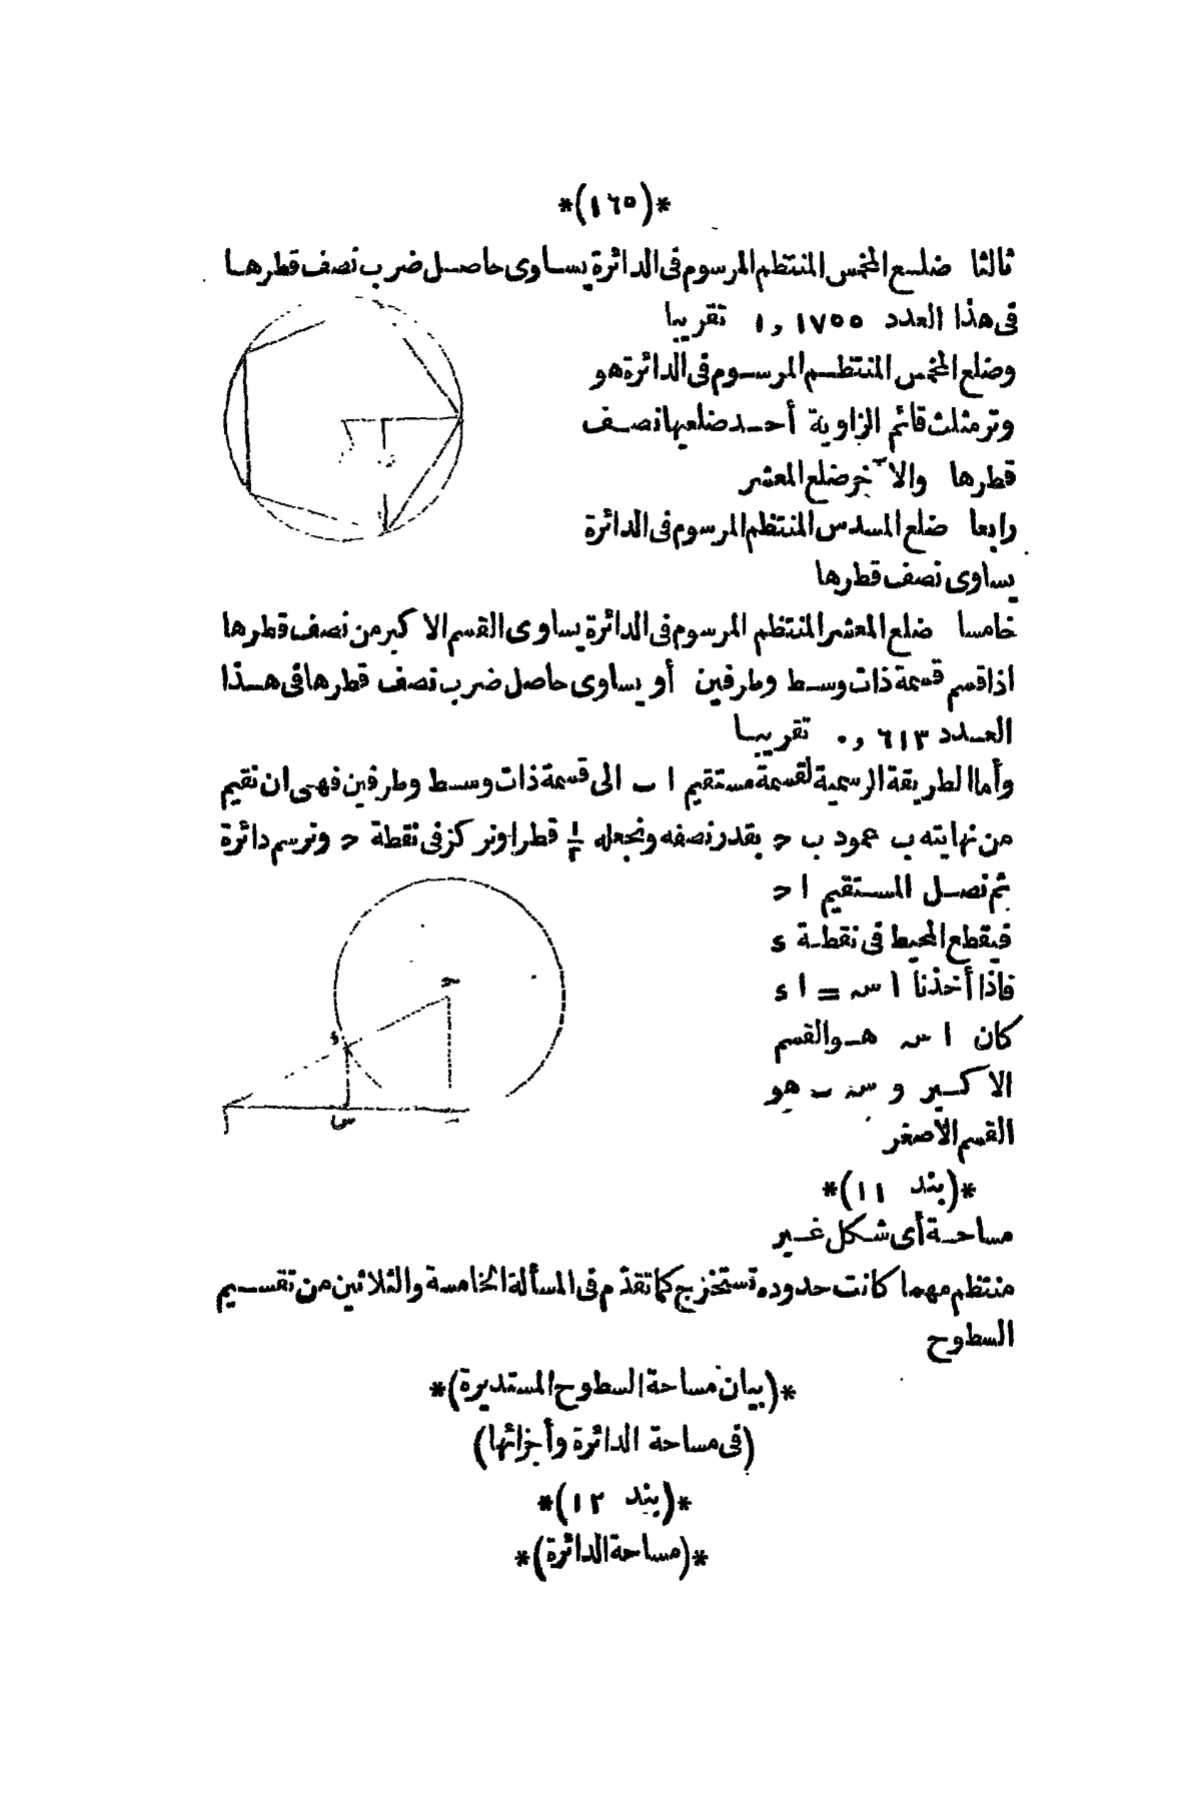 *(١٦٥)*
ثالثا ضلع المخمس المنتظم المرسوم فى الدائرة يساوى حاصل ضرب نصف قطرها
فى هذا العدد ١,١٧٥٥ تقريبا
وضلع المخمس المنتظم المرسوم فى الدائرة هو
وتر مثلث قائم الزاوية أحد ضلعيها نصف
قطرها والآخر ضلع المعشر
رابعا ضلع المسدس المنتظم المرسوم فى الدائرة
يساوى نصف قطرها
خامسا ضلع المعشر المنتظم المرسوم فى الدائرة يساوى القسم الاكبر من نصف قطرها
اذا قسم قسمة ذات وسط وطرفين أو يساوى حاصل ضرب نصف قطرها فى هذا
العدد ٠,٦١٣ تقريبا
وأما الطريقة الرسمية لقسمة مستقيم ا ب الى قسمة ذات وسط وطرفين فهى ان نقيم
من نهايته ب عمود ب ح بقدر نصفه ونجعله ١/٢ قطرا ونركز فى نقطة ح ونرسم دائرة
ثم نصل المستقيم ا ح
فيقطع المحيط فى نقطة ء
فاذا أخذنا ا س = ا ء
كان ا س هو القسم
الاكبر و س ب هو
القسم الاصغر
ح
ء
ا
س
ب
*(بند ١١)*
مساحة أى شكل غير
منتظم مهما كانت حدوده تستخرج كما تقدم فى المسألة الخامسة والثلاثين من تقسيم
السطوح
*(بيان مساحة السطوح المستديرة)*
(فى مساحة الدائرة وأجزائها)
*(بند ١٢)*
*(مساحة الدائرة)*